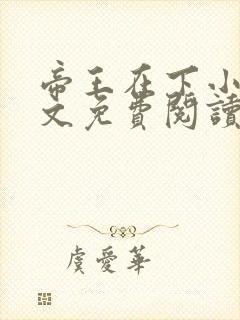 帝王在下小
文免費閱讀
虞愛華